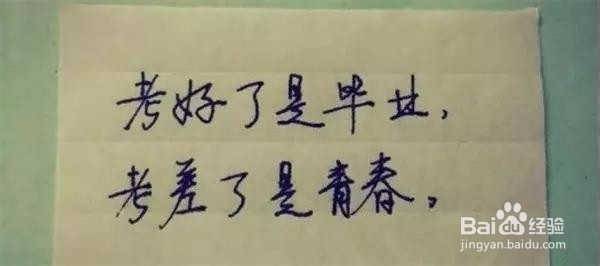 考好了是毕业,
考差了是青春。
Baidu经验
jingyan.baidu.com